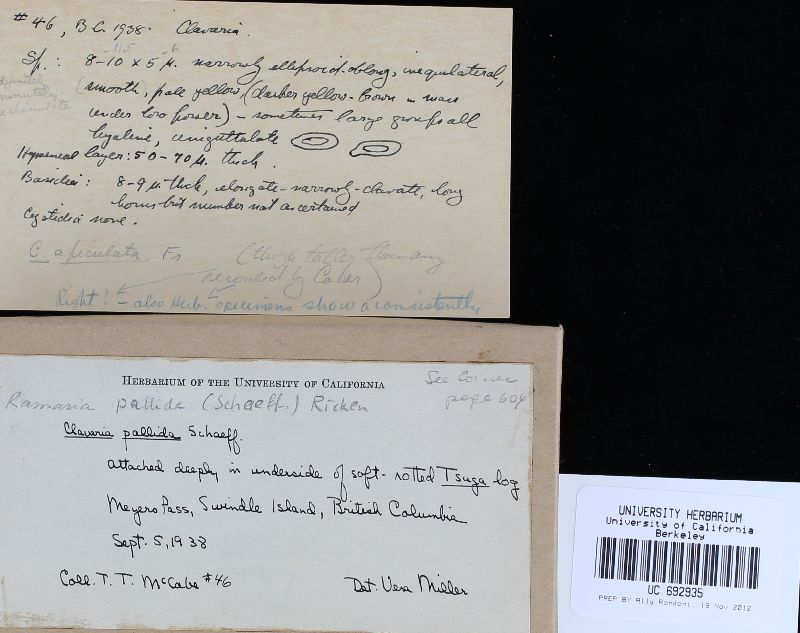 #46, B.C. 1938. Clavaria.
-11.5 -6
Sp.: 8-10 x 5 µ. narrowly ellipsoid-oblong, inequilateral,
definitely
minutely
echinulate
(smooth), pale yellow, (darker yellow-brown in mass
under low power) - sometimes large groups all
hyaline, uniguttulate
Hymeneal layer: 50-70 µ. thick.
Basidia: 8-9 µ thick, elongate-narrowly-clavate, long
horns but number not ascertained
Cystidia none.
C. apiculata Fr. (though taller than any
recorded by Coker)
Right! - also Herb. specimens show a consistently
HERBARIUM OF THE UNIVERSITY OF CALIFORNIA
See Corner
page 604
Ramaria pallida (Schaeff.) Ricken
Clavaria pallida Schaeff.
attached deeply in underside of soft-rotted Tsuga log
Meyers Pass, Swindle Island, British Columbia
Sept. 5, 1938
Coll. T. T. McCabe #46 Det. Vera Miller
UNIVERSITY HERBARIUM
University of California
Berkeley
UC 692935
PREP BY Ally Rondoni, 19 Nov 2012